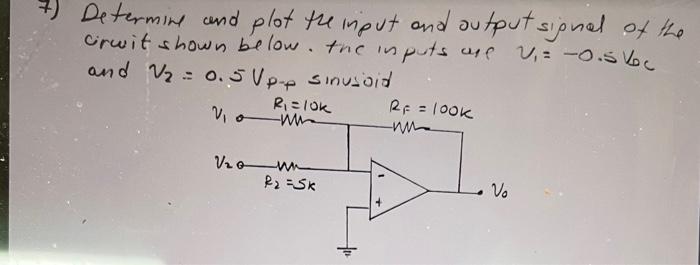 7) Determine and plot the input and output signal of the
circuit shown below. the inputs are V₁ = -0.5 VDC
and V₂ = 0.5 Vp-p sinusoid
R₁=10K RF = 100K
V₁
V₂
R₂ =5K
-
+
Vo